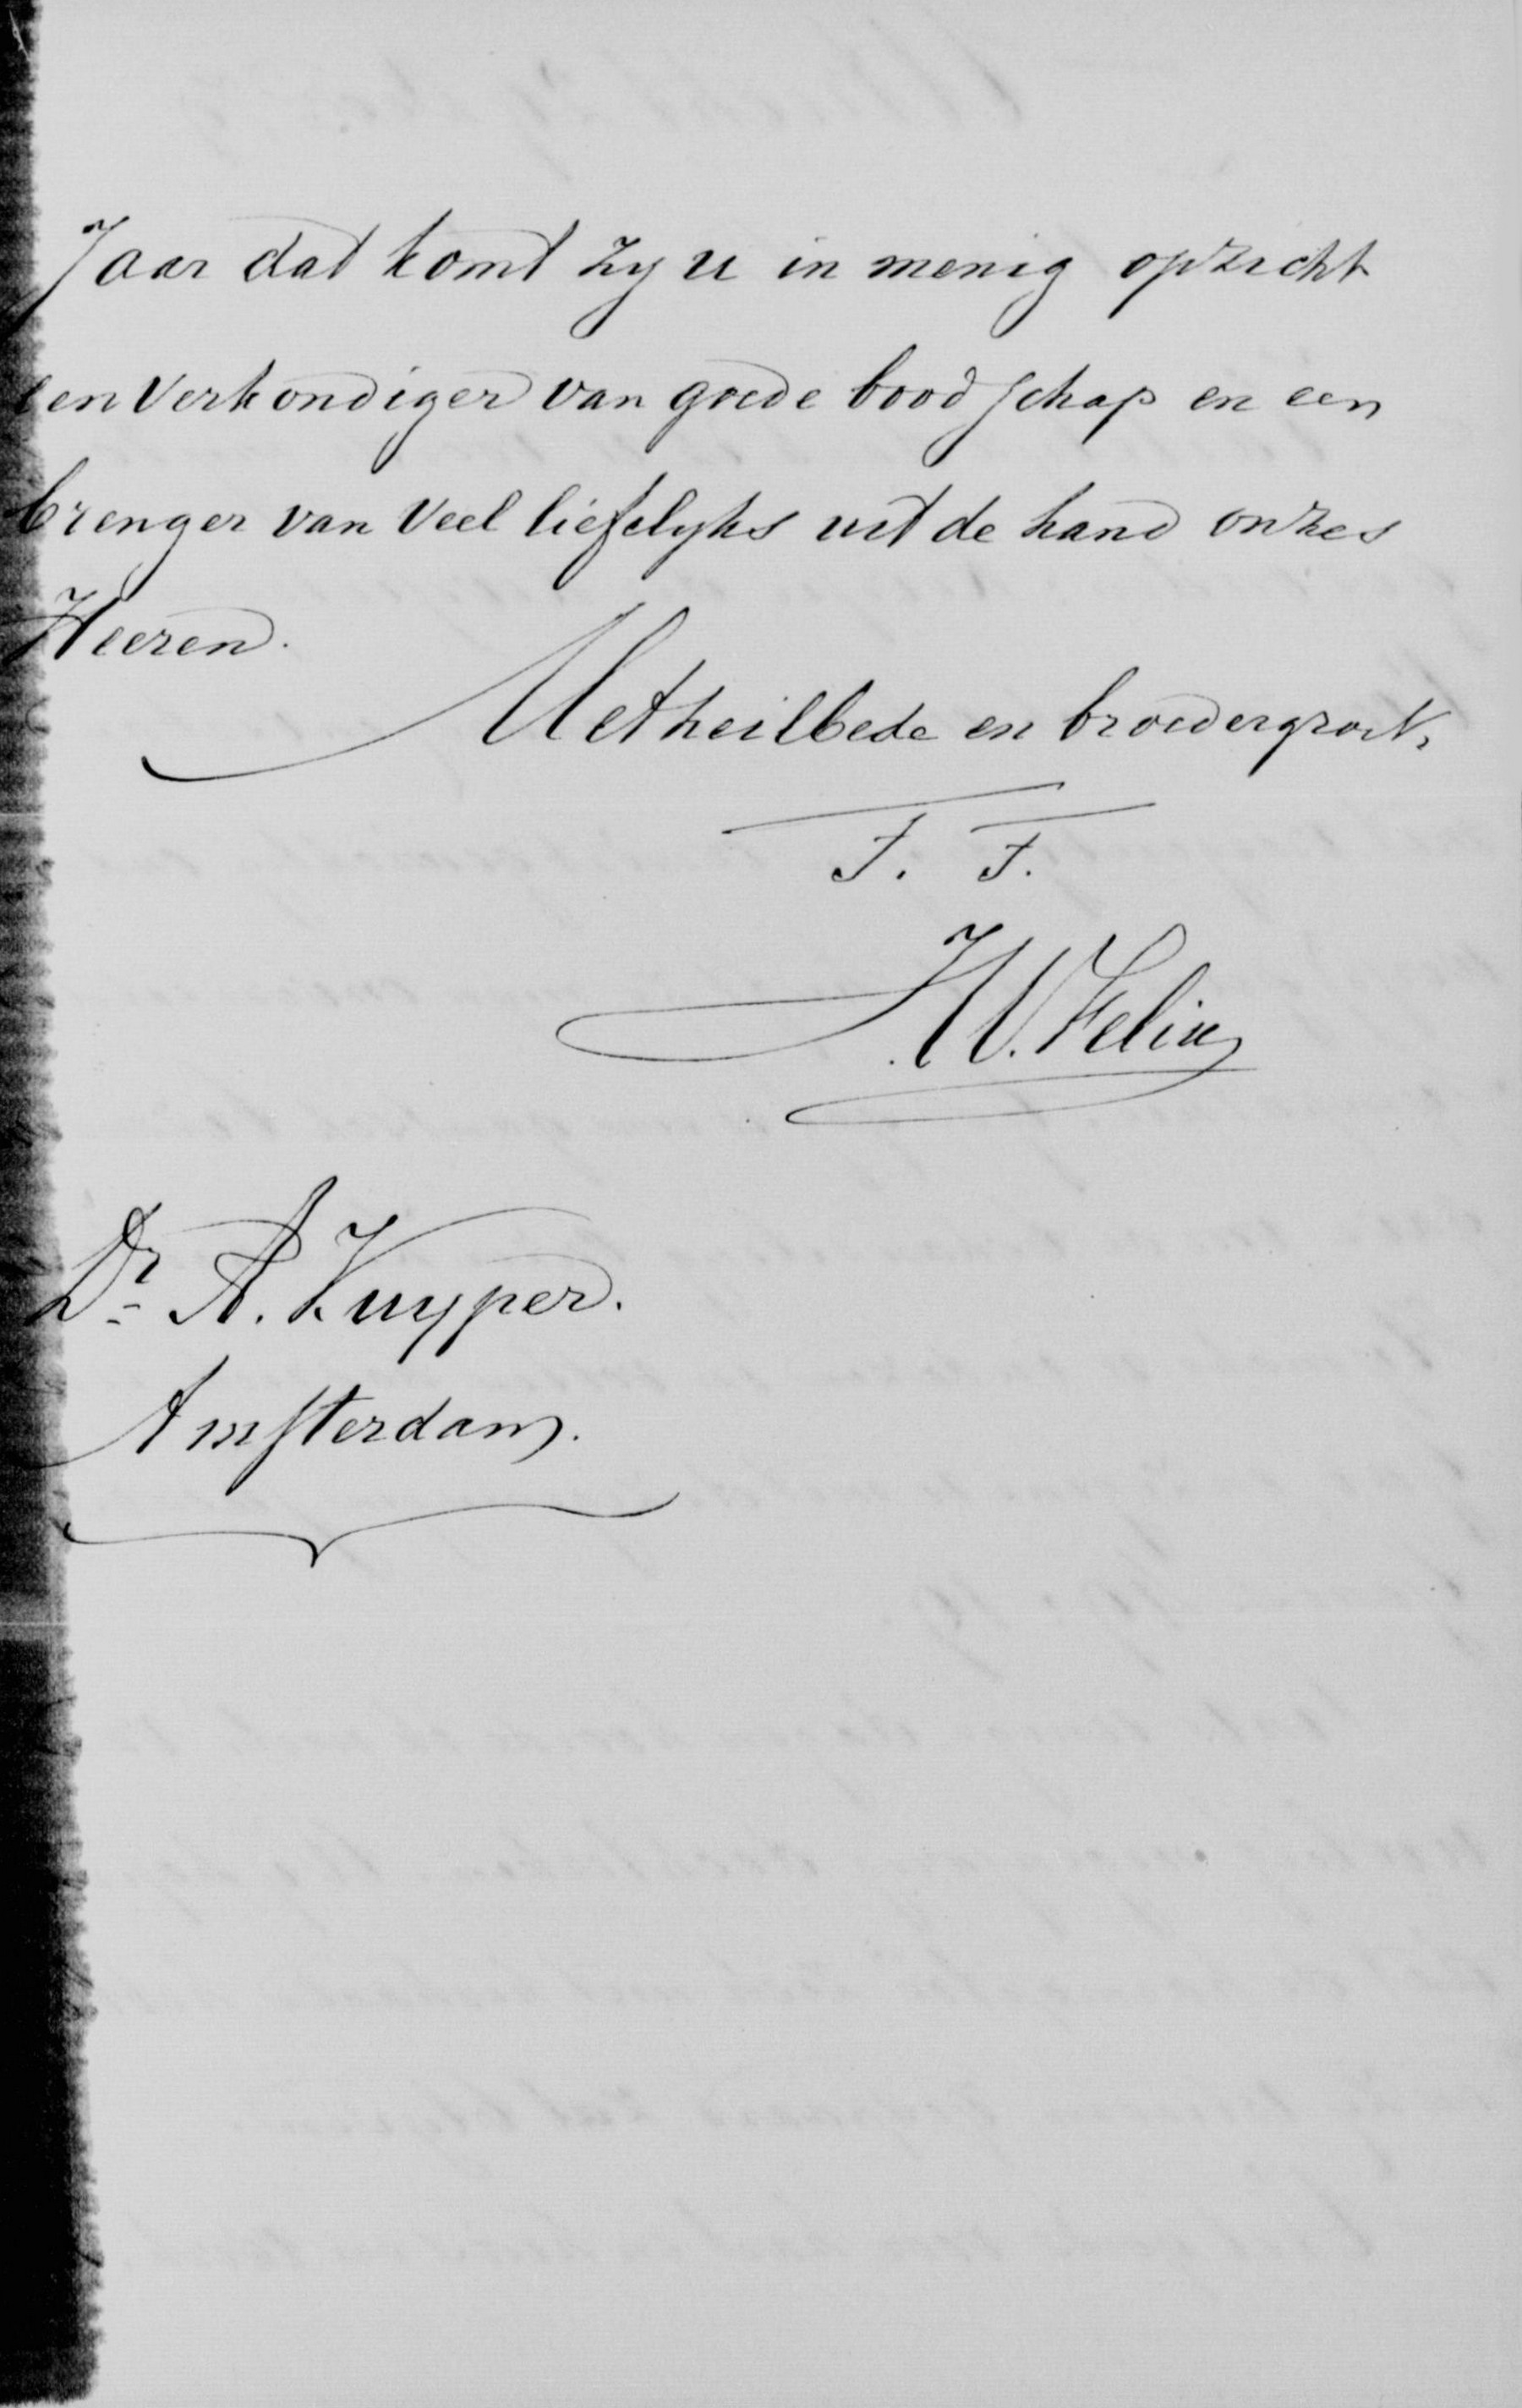 Jaar dat komt zy u in menig opzicht
een verkondiger van goede boodschap en een
brenger van veel liefelyks uit de hand onzes
Heeren.
Met heilbede en broedergroet,
T. T.
J.W. Felix
Dr. A. Kuyper.
Amsterdam.